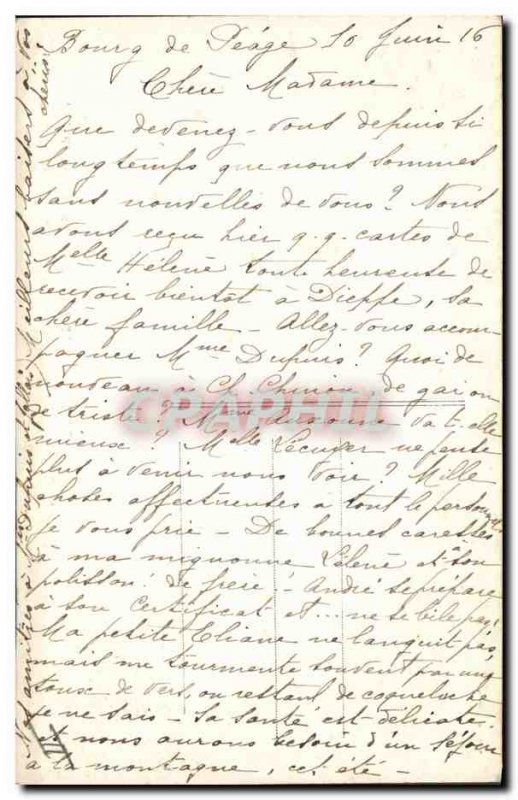 Bourg de Péage 10 Juin 16
Chère Madame.
Que devenez-vous depuis si
longtemps que nous sommes
sans nouvelles de vous? Nous
avons reçu hier q.q. cartes de
Melle Hélène toute heureuse de
recevoir bientôt à Dieppe, sa
chère famille - Allez-vous accom-
pagner Mme Dupuis? Quoi de
nouveau à Ch. de gai ou
de triste? Mme va-t-elle
mieux? Melle Lécuyer ne pense
plus à venir nous voir? Mille
choses affectueuses à tout le personnel
je vous prie - De bonnes caresses
à ma mignonne Hélène et son
polisson de frère! - André se prépare
à son certificat et... ne se bile pas!
Ma petite Eliane ne languit pas,
mais me tourmente souvent par une
toux de vers ou restant de coqueluche
je ne sais - Sa santé est délicate
et nous aurons besoin d'un séjour
à la montagne, cet été -
Nos amitiés à Dupuis Meilleurs baisers à vos
chéris.
CPAPHIL